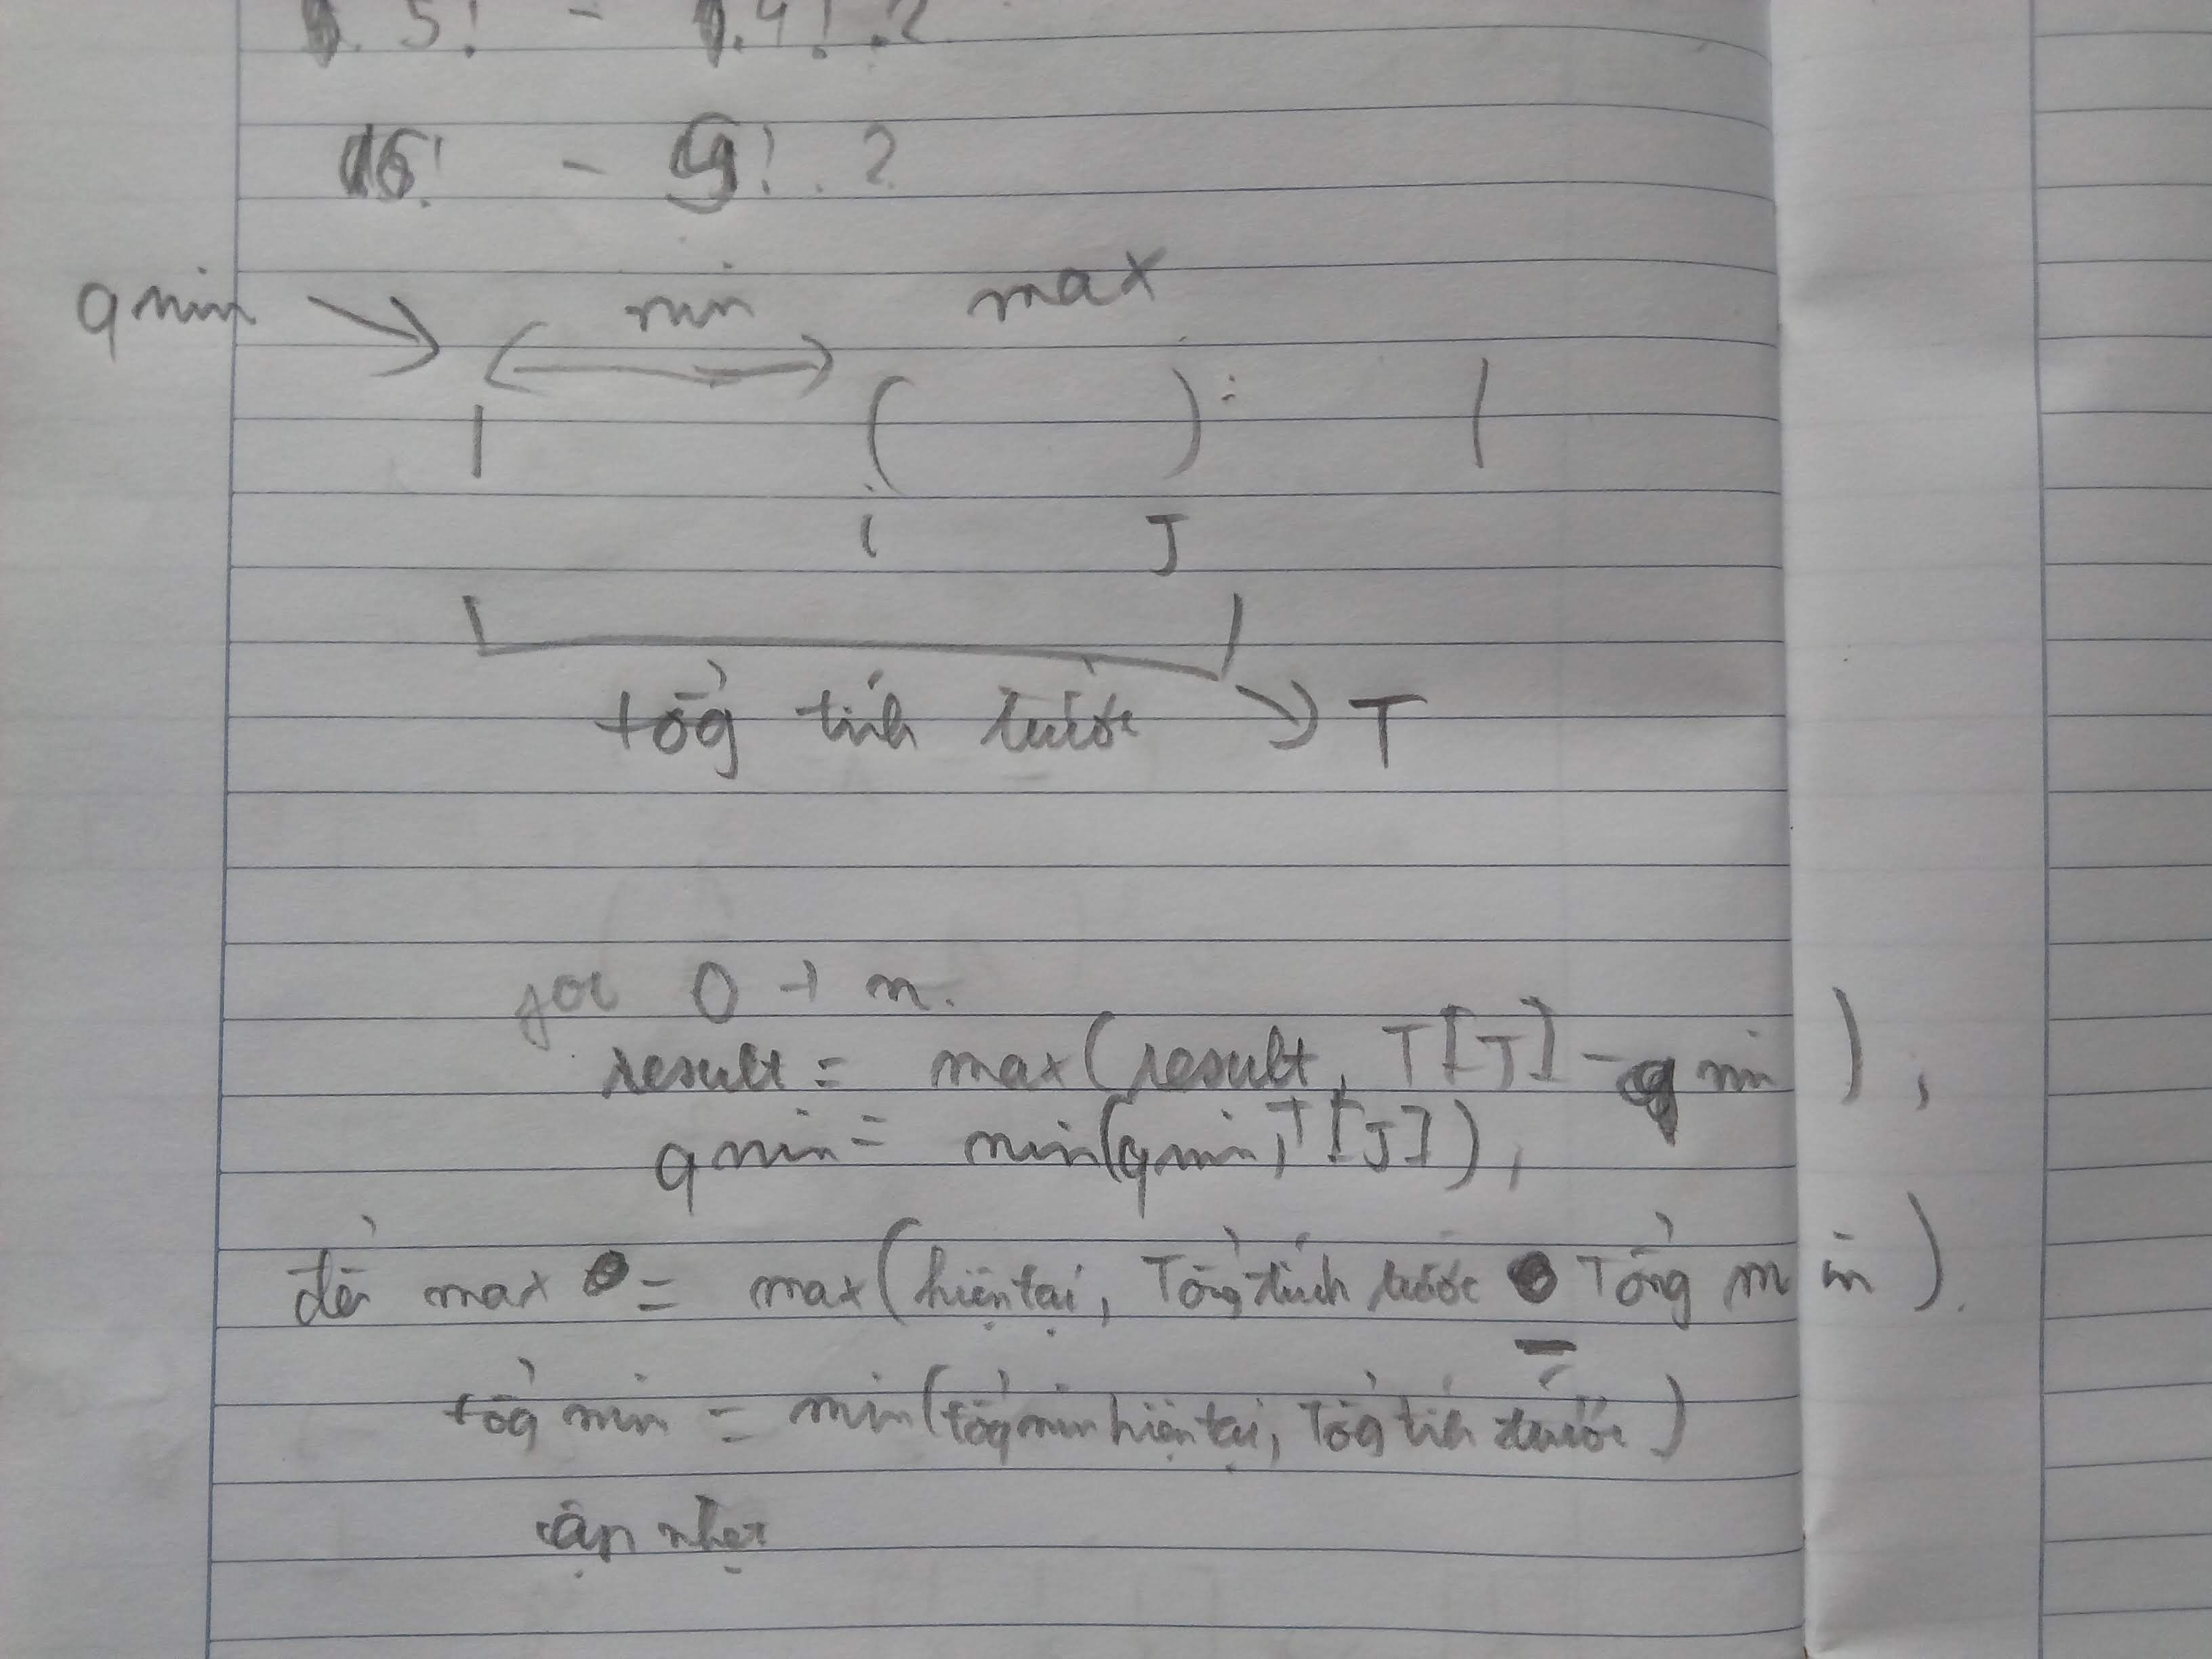 5! - 4! . 2
6! - ! . 2
qmin min max
i J
tổg tích trước T
for 0 → n.
result = max(result, T[J] - qmin);
qmin = min(qmin, T[J]),
để max = max(hiện tại, Tổng tích trước - Tổng min).
tổg min = min(tổg min hiện tại, Tổg tích trước)